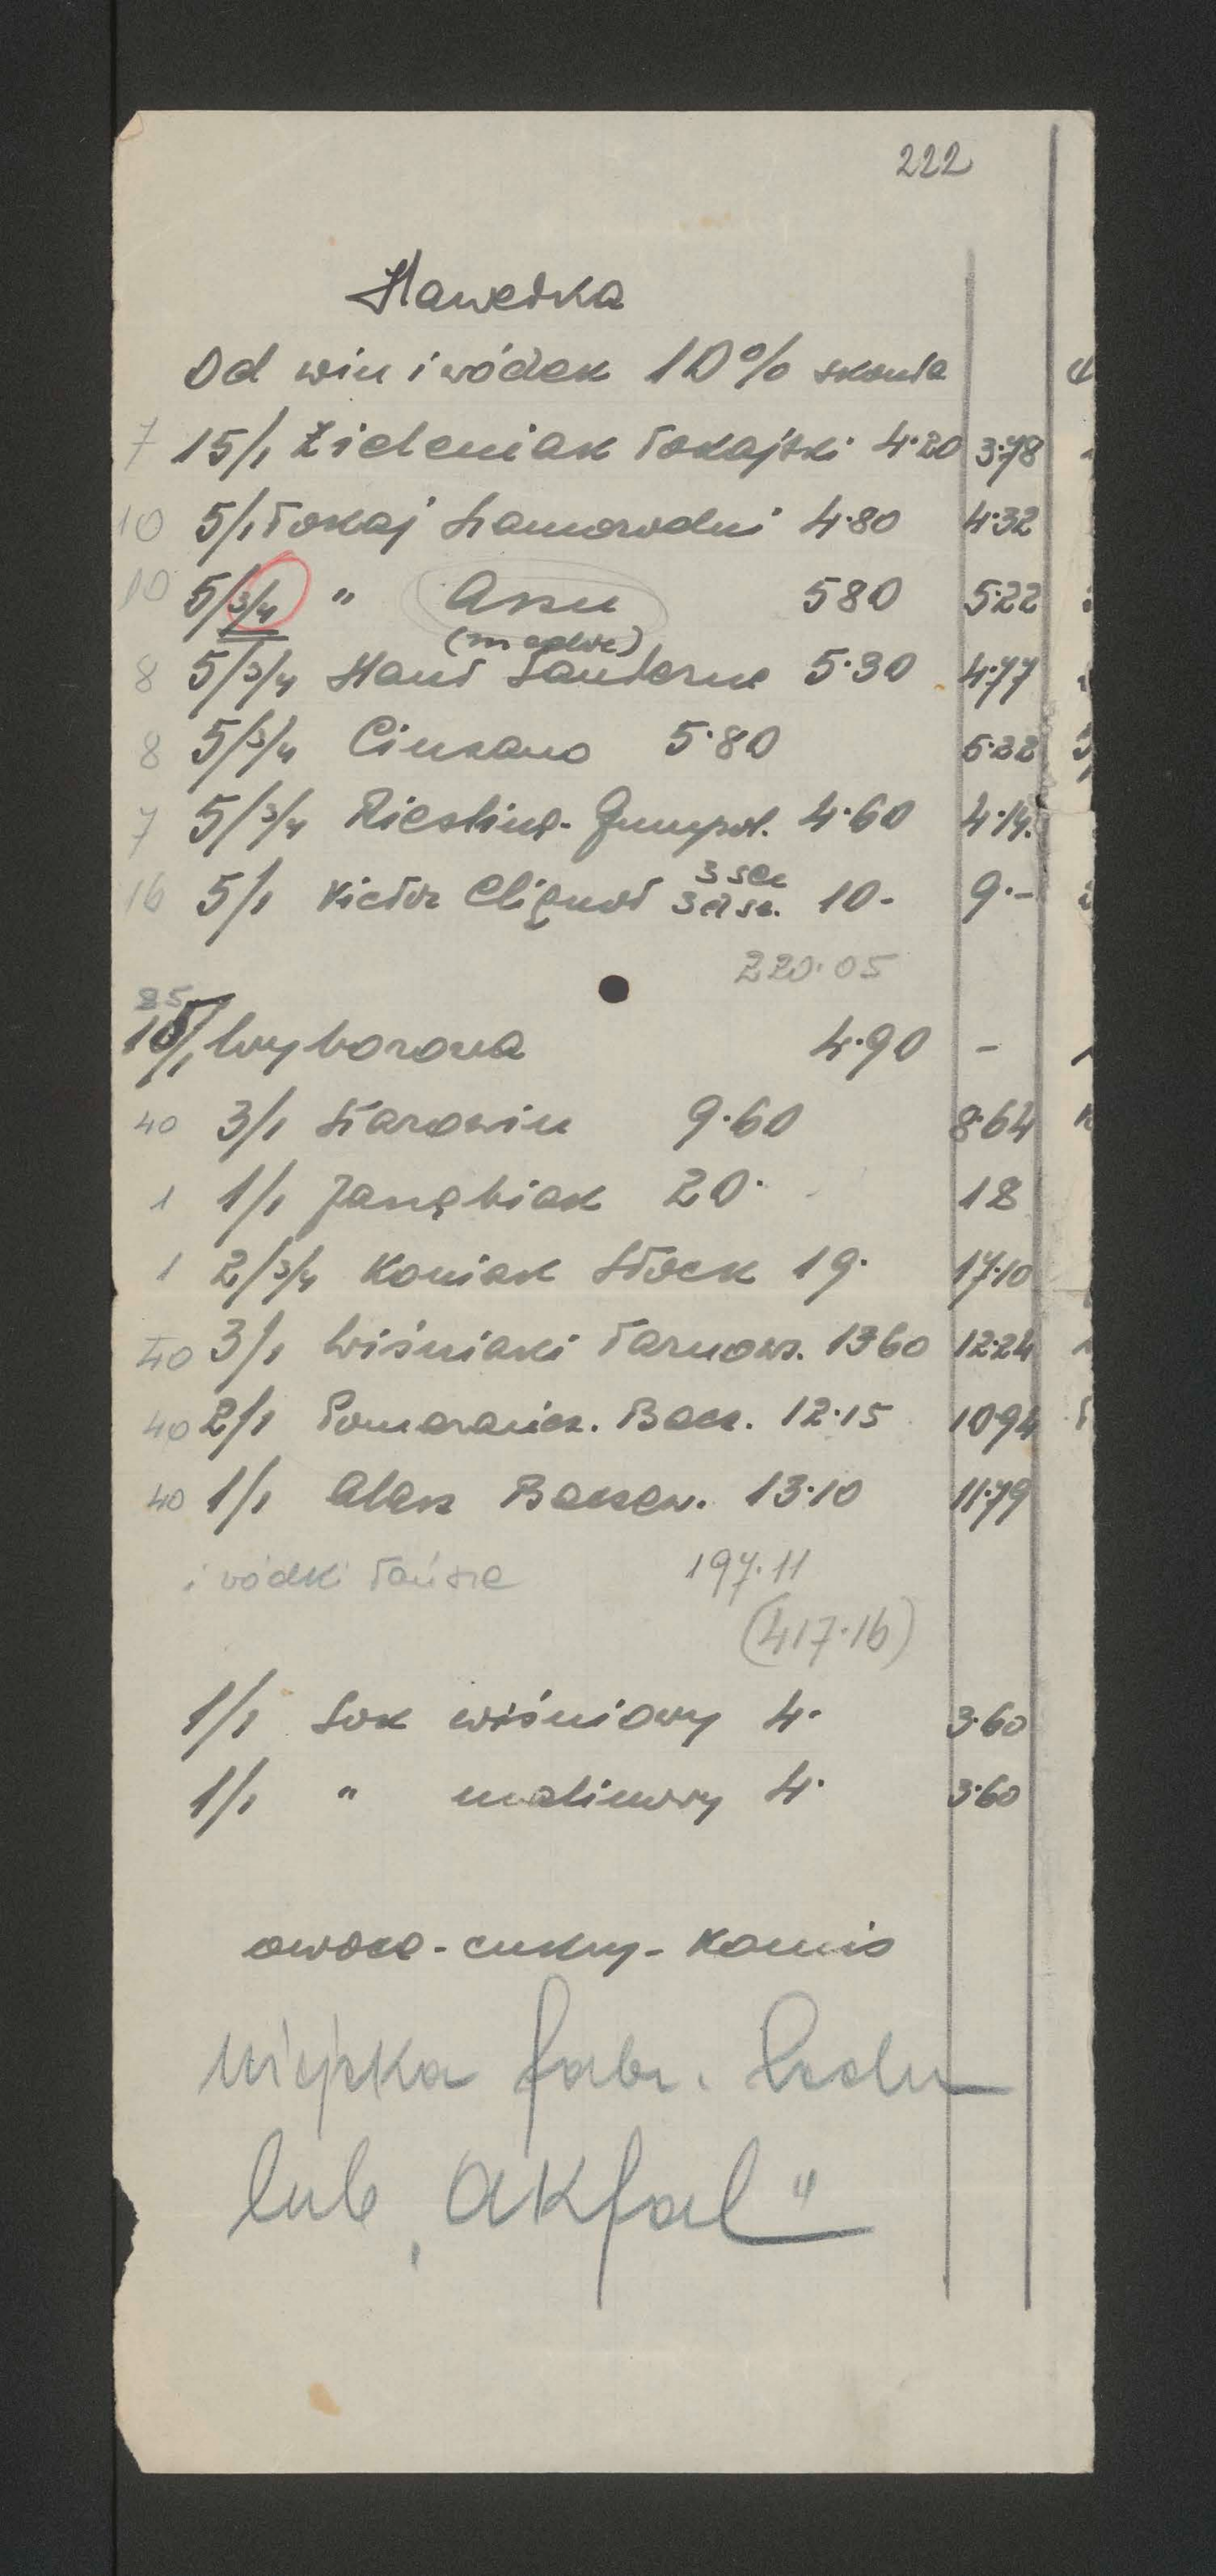 222
Hawełka
Od win i wódek 10% skonta
7 15/1 Zieleniak Tokajski 4·20 3·78
10 5/1 Tokaj Samorodni 4·80 4·32
10 5/3/4 " Assu 580 5·22
5/3/4 Haut Sauterne 5·30 4·77
8
8 5/3/4 Cinzano 5·80 5·22
7 5/3/4 Riesling- Gumpol. 4·60 4·14.
16 5/1 Victor Cliquot 3 sec 10.- 9.-
220·05
85
15/1 Wyborowa 4·90 -
40 3/1 Starowin 9·60 8·64
1 1/1 Jarzębiak 20· 18
1 2/3/4 Koniak Stock 19· 17·10
40 3/1 Wiśniaki Tarnows. 1360 12·24
40 2/1 Pomarańcz. Bacz. 12·15 10·94
40 1/1 Alasz Baczew. 13·10 11·79
i wódki tańsze 197·11
(417·16)
1/1 Sok wiśniowy 4· 3·60
1/1 " malinowy 4· 3·60
owoce - cukry - komis
Miejska fabr. Lodu
lub „Akfal"